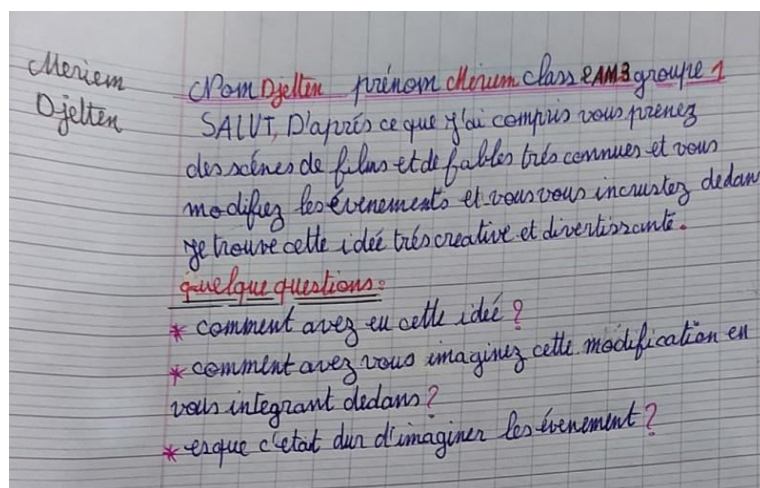 Meriem
Djelten
Nom Djelten prénom Merium class 2AM3 groupe 1
SALUT, D'aprés ce que j'ai compris vous prenez
des scénes de films et de fables trés connues et vous
modifiez les évenements et vous vous incrustez dedan
je trouve cette idéé trés creative et divertissante.
quelque questions:
* comment avez eu cette ideé ?
* comment avez vous imaginez cette modification en
vous integrant dedans ?
* esque c'etait dur d'imaginer les évenement ?